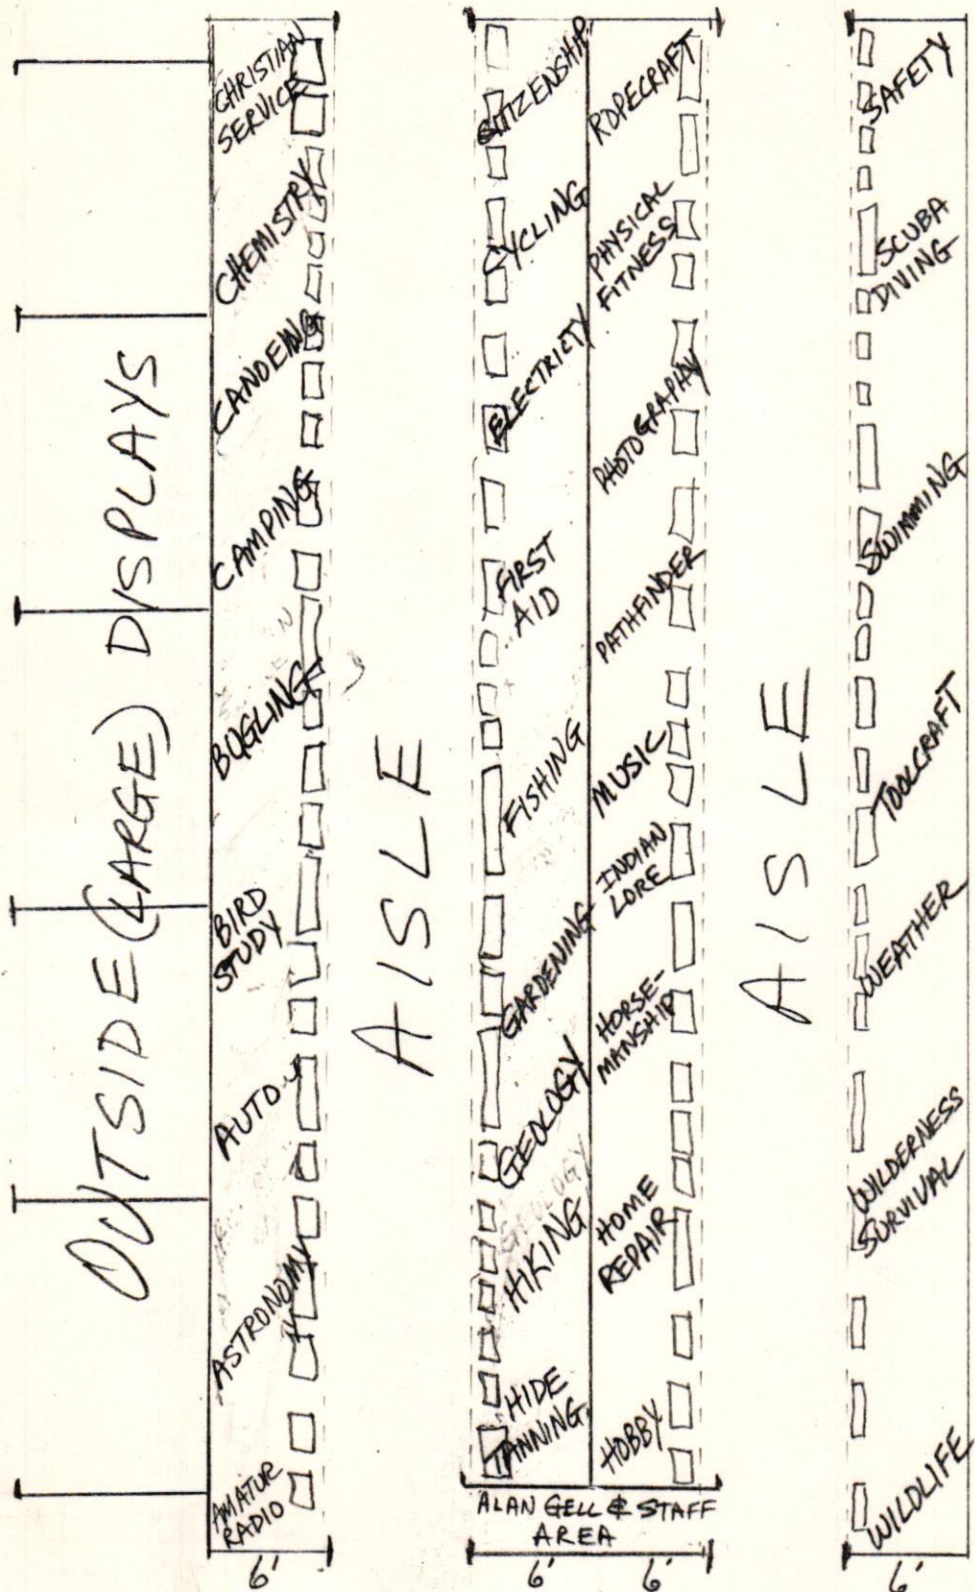 OUTSIDE (LARGE) DISPLAYS
CHRISTIAN
SERVICE
CHEMISTRY
CANOEING
CAMPING
BUGLING
BIRD
STUDY
AUTO
ASTRONOMY
AMATUR
RADIO
6'
AISLE
CITIZENSHIP
CYCLING
ELECTRICTY
FIRST
AID
FISHING
GARDENING
GEOLOGY
GEOLOGY
HIKING
HIDE
TANNING
ROPECRAFT
PHYSICAL
FITNESS
PHOTOGRAPHY
PATHFINDER
MUSIC
INDIAN
LORE
HORSE-
MANSHIP
HOME
REPAIR
HOBBY
ALAN GELL & STAFF
AREA
6'
6'
AISLE
SAFETY
SCUBA
DIVING
SWIMMING
TOOLCRAFT
WEATHER
WILDERNESS
SURVIVAL
WILDLIFE
6'